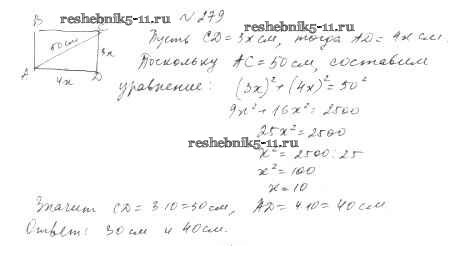 reshebnik5-11.ru № 279
reshebnik5-11.ru
B C
50см
3x
A D
4x
Пусть CD = 3x см, тогда AD = 4x см.
Поскольку AC = 50 см, составим
уравнение: (3x)² + (4x)² = 50²
9x² + 16x² = 2500
25x² = 2500
reshebnik5-11.ru
x² = 2500 : 25
x² = 100
x = 10
Значит CD = 3·10 = 30 см, AD = 4·10 = 40 см
Ответ: 30 см и 40 см.